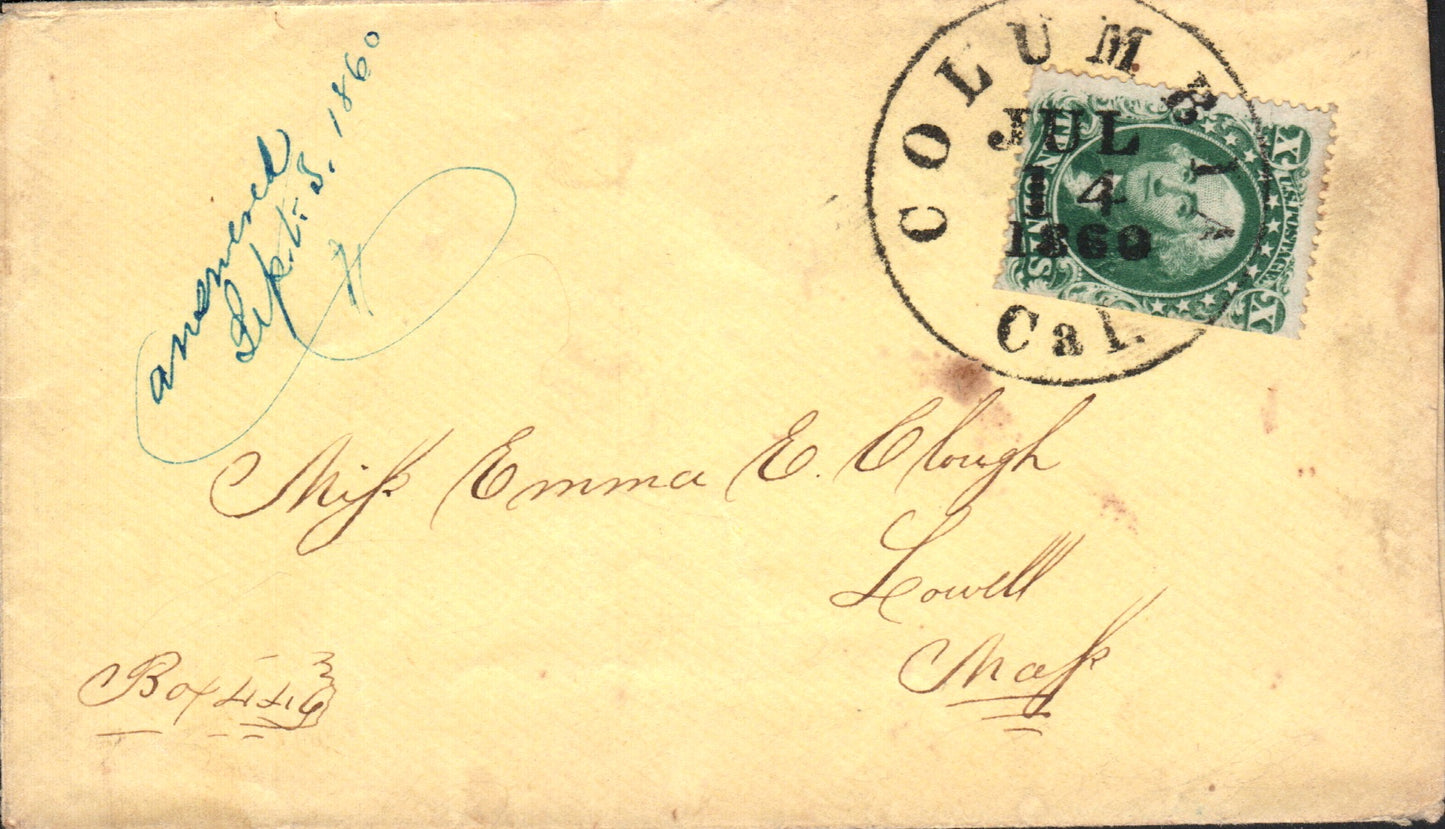 answered
Sept. 3. 1860
COLUMBIA
JUL
14
1860
Cal.
U.S. POSTAGE
X
X
Miss Emma E. Clough
Lowell
Mass
Box